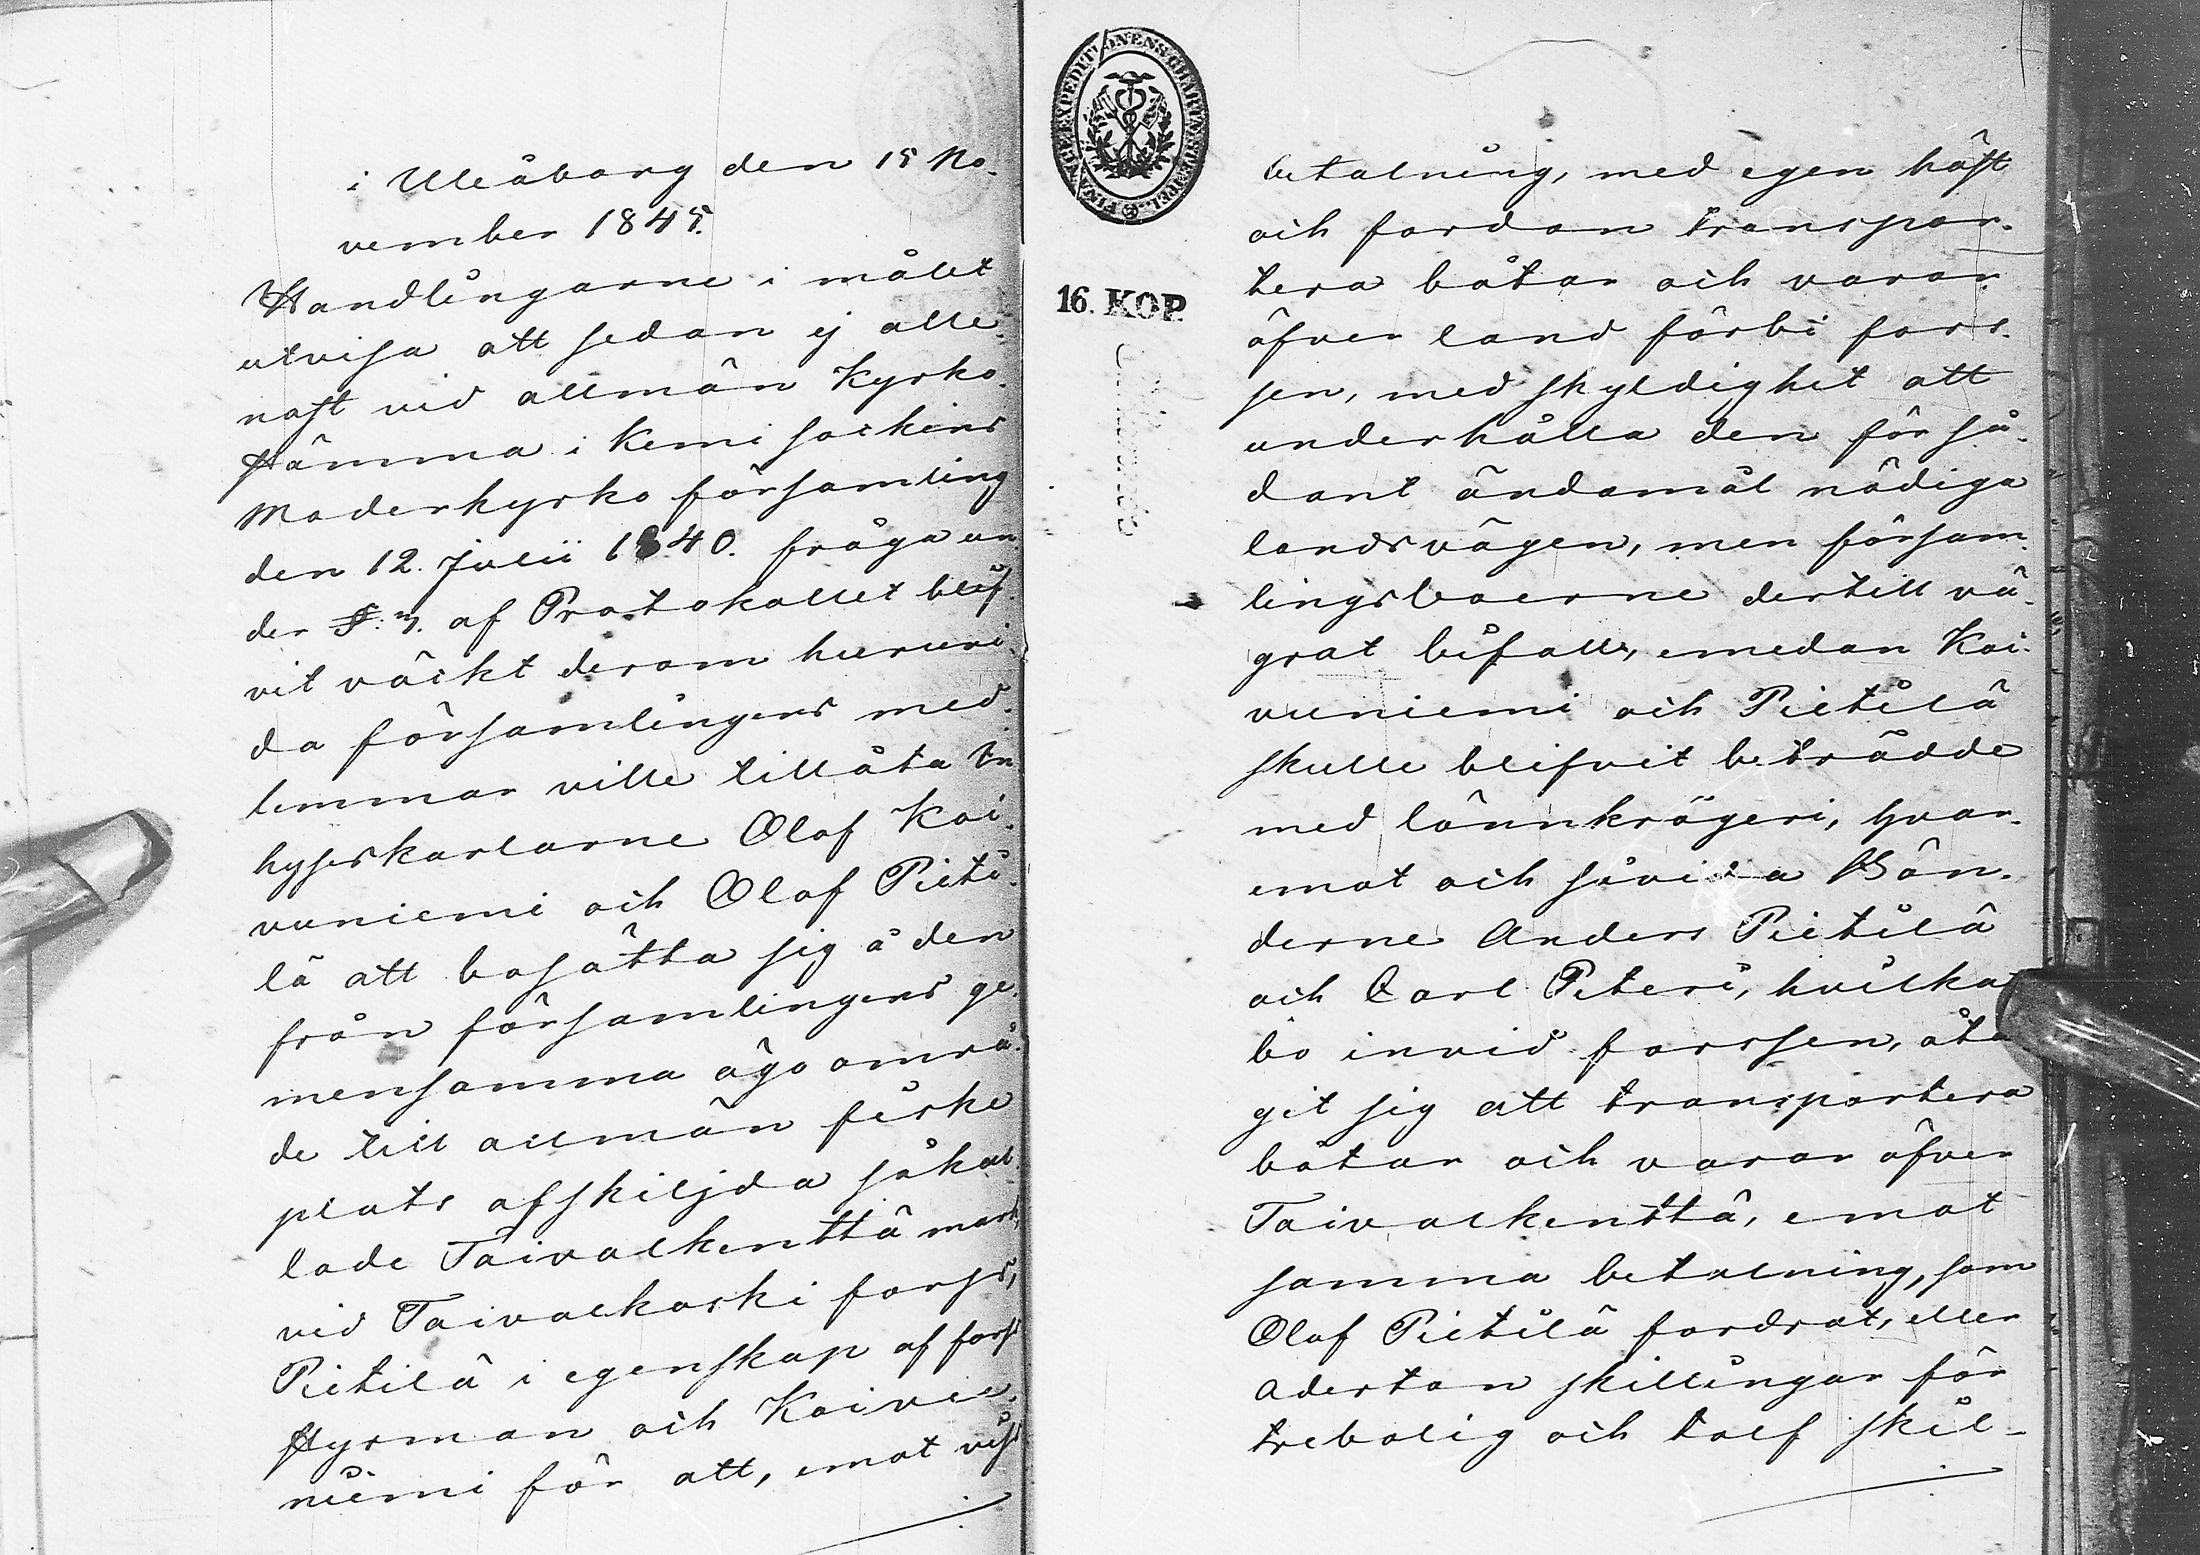 i Uleåborg den 15 No-
vember 1845.
Handlingarne i målet
utvisa att sedan ej alle-
nast vid allmän Kyrko-
stämma i Kemi sockens
Moderkyrko församling
den 12. Julii 1840. fråga un-
der §: 3. af Protokollet blif-
vit väckt derom huruvi-
da församlingens med-
lemmar ville tillåta In-
hyseskarlarne Olof Koi-
vuniemi och Olof Pieti-
lä att bosätta sig å den
från församlingens ge-
mensamma ägo områ-
de till allmän fiske
plats afskiljda såkal-
lade Taivalkenttä mark,
vid Taivalkoski forss,
Pietilä i egenskap af fors-
styrman och Koivu-
niemi för att, emot viss
FINANCE EXPEDITIONENS CHARTÆ SIGILL
16. KOP.
betalning, med egen häst
och fordon transpor-
tera båtar och varor
öfver land förbi fors-
sen, med skyldighet att
underhålla den för så-
dant ändamål nödiga
landsvägen, men försam-
lingsboerne dertill vä-
grat bifall, emedan Koi-
vuniemi och Pietilä
skulle blifvit beträdde
med lönnkrögeri, hvar-
emot och såvida Bön-
derne Anders Pietilä
och Carl Peteri, hvilka
bo invid forssen, åta-
git sig att transportera
båtar och varor öfver
Taivalkenttä, emot
samma betalning, som
Olof Pietilä fordrat, eller
Aderton skillingar för
trebolig och tolf skil-